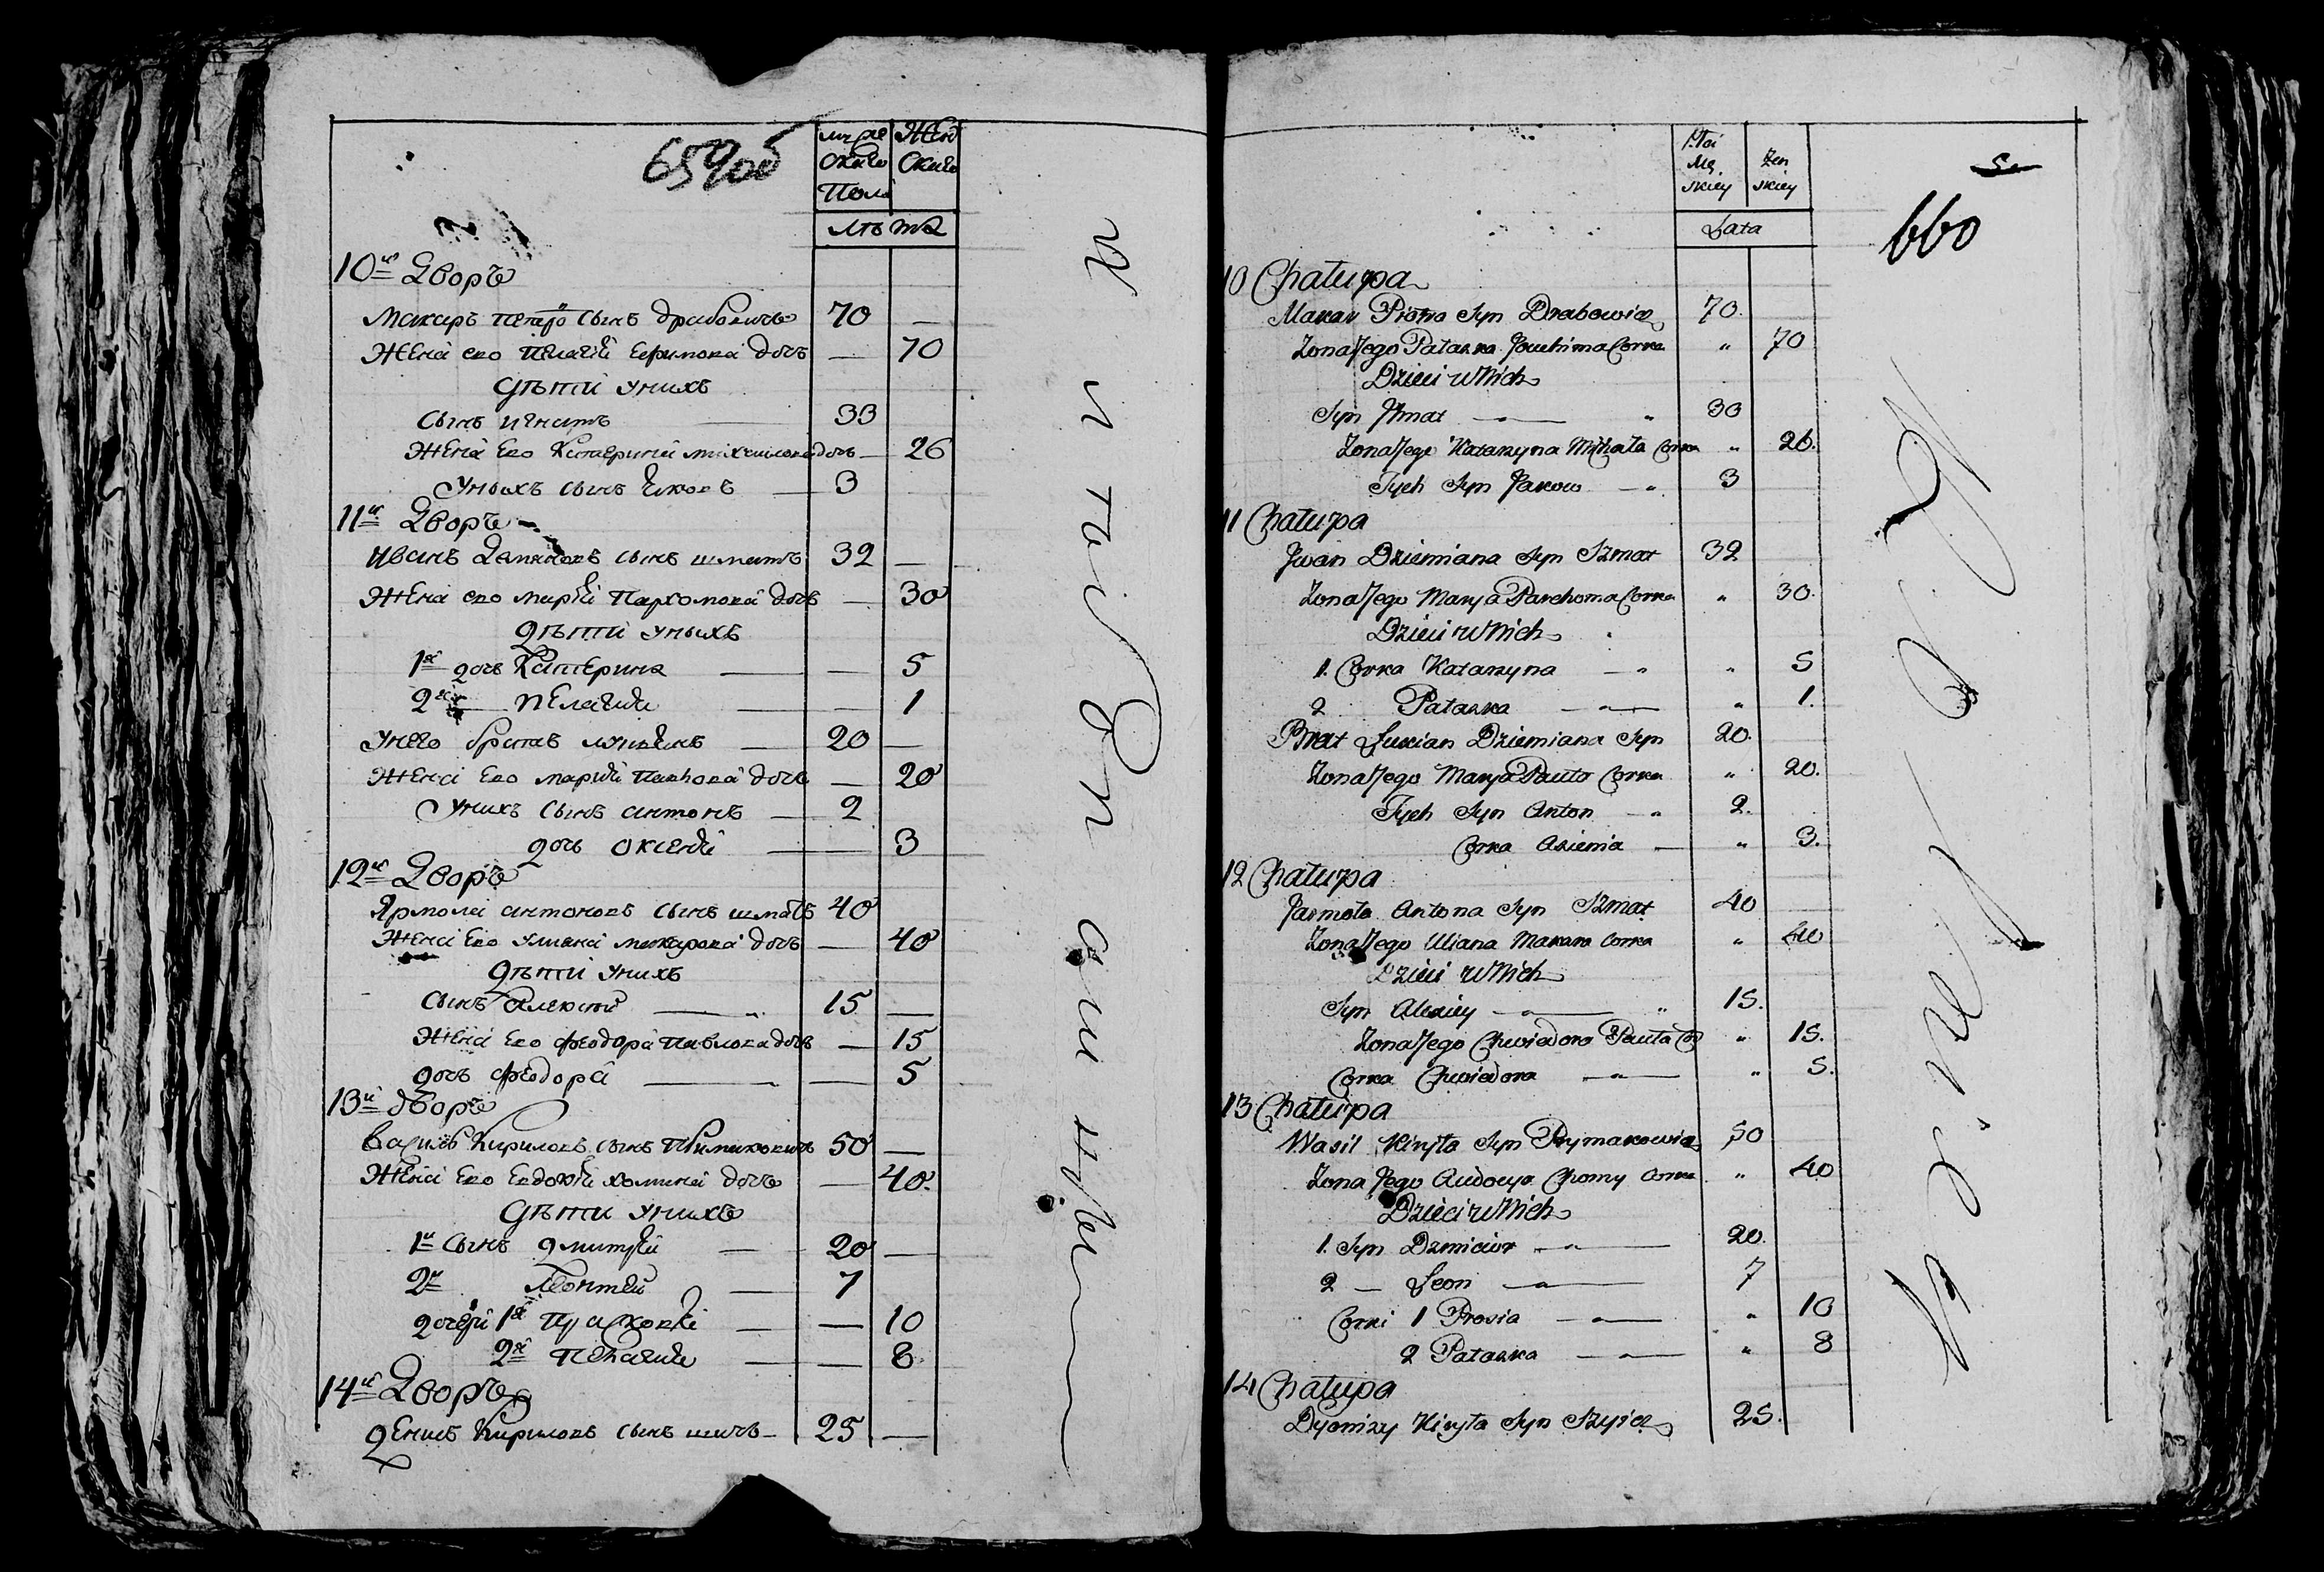 659об
Мужескаго Пола Женскаго
Лѣта
10й Дворъ
Макаръ Петровъ сынъ Драбовичъ 70 —
Жена его Пелагія Ефимова дочь — 70
Дѣти у нихъ
Сынъ Игнатъ 33
Жена Его Катерина Михайлова дочь — 26
У ныхъ сынъ Яковъ — 3
11й Дворъ
Иванъ Демяновъ сынъ Шматъ 32 —
Жена его Марія Пархомова дочь — 30
Дѣти у ныхъ
1я дочь Катерина — — 5
2я — Пелагия — — 1
У него братъ Лукьянъ — 20 —
Жена Его Мария Павлова дочь — 20
У нихъ сынъ Антонъ — 2
дочь Оксения — — 3
12й Дворъ
Ярмола Антоновъ сынъ Шматъ 40
Жена Его Уляна Макарова дочь — 40
Дѣти у нихъ
Сынъ Алексей — 15 —
Жена Его Феодора Павлова дочь — 15
дочь Феодора — — 5
13й дворъ
Василь Кириловъ сынъ Приймаковичъ 50 —
Жена Его Евдокия Хомина дочь — 40.
Дѣти у нихъ
1й Сынъ Дмитрій — 20 —
2й Леонтей — 7
дочери 1я Прасковія — — 10
2я Пелагия — — 8
14й Дворъ
Денисъ Кириловъ сынъ Шичъ — 25 —
Płci Męskiey Żenskiey
Lata
5.
660
10 Chałupa
Makar Piotra Syn Drabowicz 70.
Zona Jego Pałaska Jauchima Corka " 70
Dzieci u Nich
Syn Ihnat — " 30
Zona Jego Katarzyna Michała Corka " 26.
Tych Syn Jakow — " 3
11 Chałupa
Jwan Dziemiana Syn Szmat 32
Zona Jego Marya Parchoma Corka " 30.
Dzieci u Nich
1. Corka Katarzyna — " " 5
2 Pałaska — " — " 1.
Brat Łukian Dziemiana Syn 20.
Zona Jego Marya Pauło Corka " 20.
Tych Syn Anton — " 2.
Corka Axienia — " 3.
12 Chałupa
Jarmoła Antona Syn Szmat 40
Zona Jego Uliana Makara Corka " 40
Dzieci u Nich
Syn Alexiey — " — " 15.
Zona Jego Chwiedora Pauła Cor " 15.
Corka Chwiedora — " — " 5.
13 Chałupa
Wasil Kiryła Syn Prymakowicz 50
Zona Jego Audocya Chomy Corka " 40
Dzieci u Nich
1. Syn Dzmicior — " — 20.
2 — Leon — " — 7
Corki 1 Prosia — " — " 10
2 Pałaska — " — " 8
14 Chałupa
Dyonizy Kiryła Syn Szyicz 25.